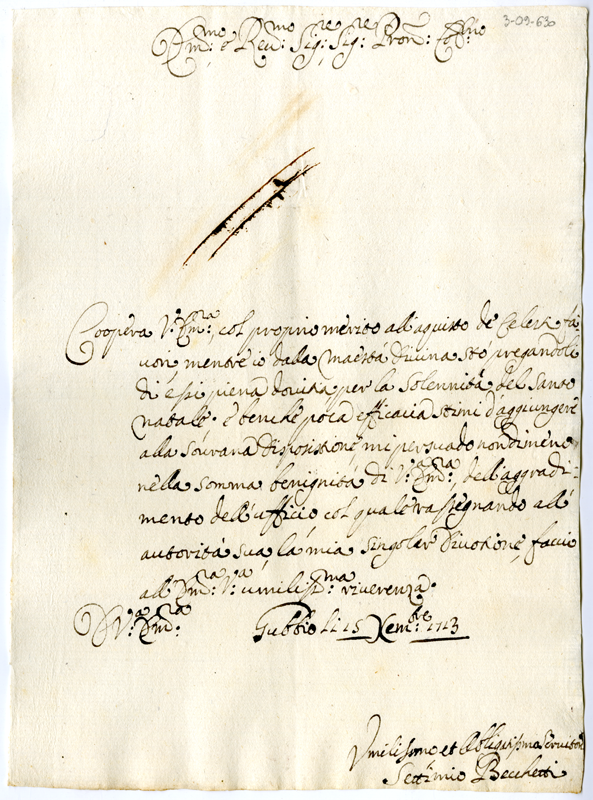 3-09-630
Em:mo e Reu:mo Sig:re Sig:re Pron: Col:mo
Coopera V:a Em:ra, col proprio merito all'aquisto de Celesti fa
uori, mentre io dalla Maestà Diuina sto pregandoli
di essi piena douitia per la Solennità del Santo
Natale. e benche poca efficacia stimi d'aggiungere
alla Sourana disposizione, mi persuado nondimeno
nella somma benignità di V:a Em:ra, dell'aggradi-
mento dell'ufficio col quale rassegnando all'
autorità sua, la mia singolar Diuozione, faccio
all' Em:ra V:a umiliss:ma riuerenza.
D V:a Em:ra
Gubbio li 15 Xem:bre 1713
Vmilissimo et Obligatissimo Seruitore
Settimio Becchetti